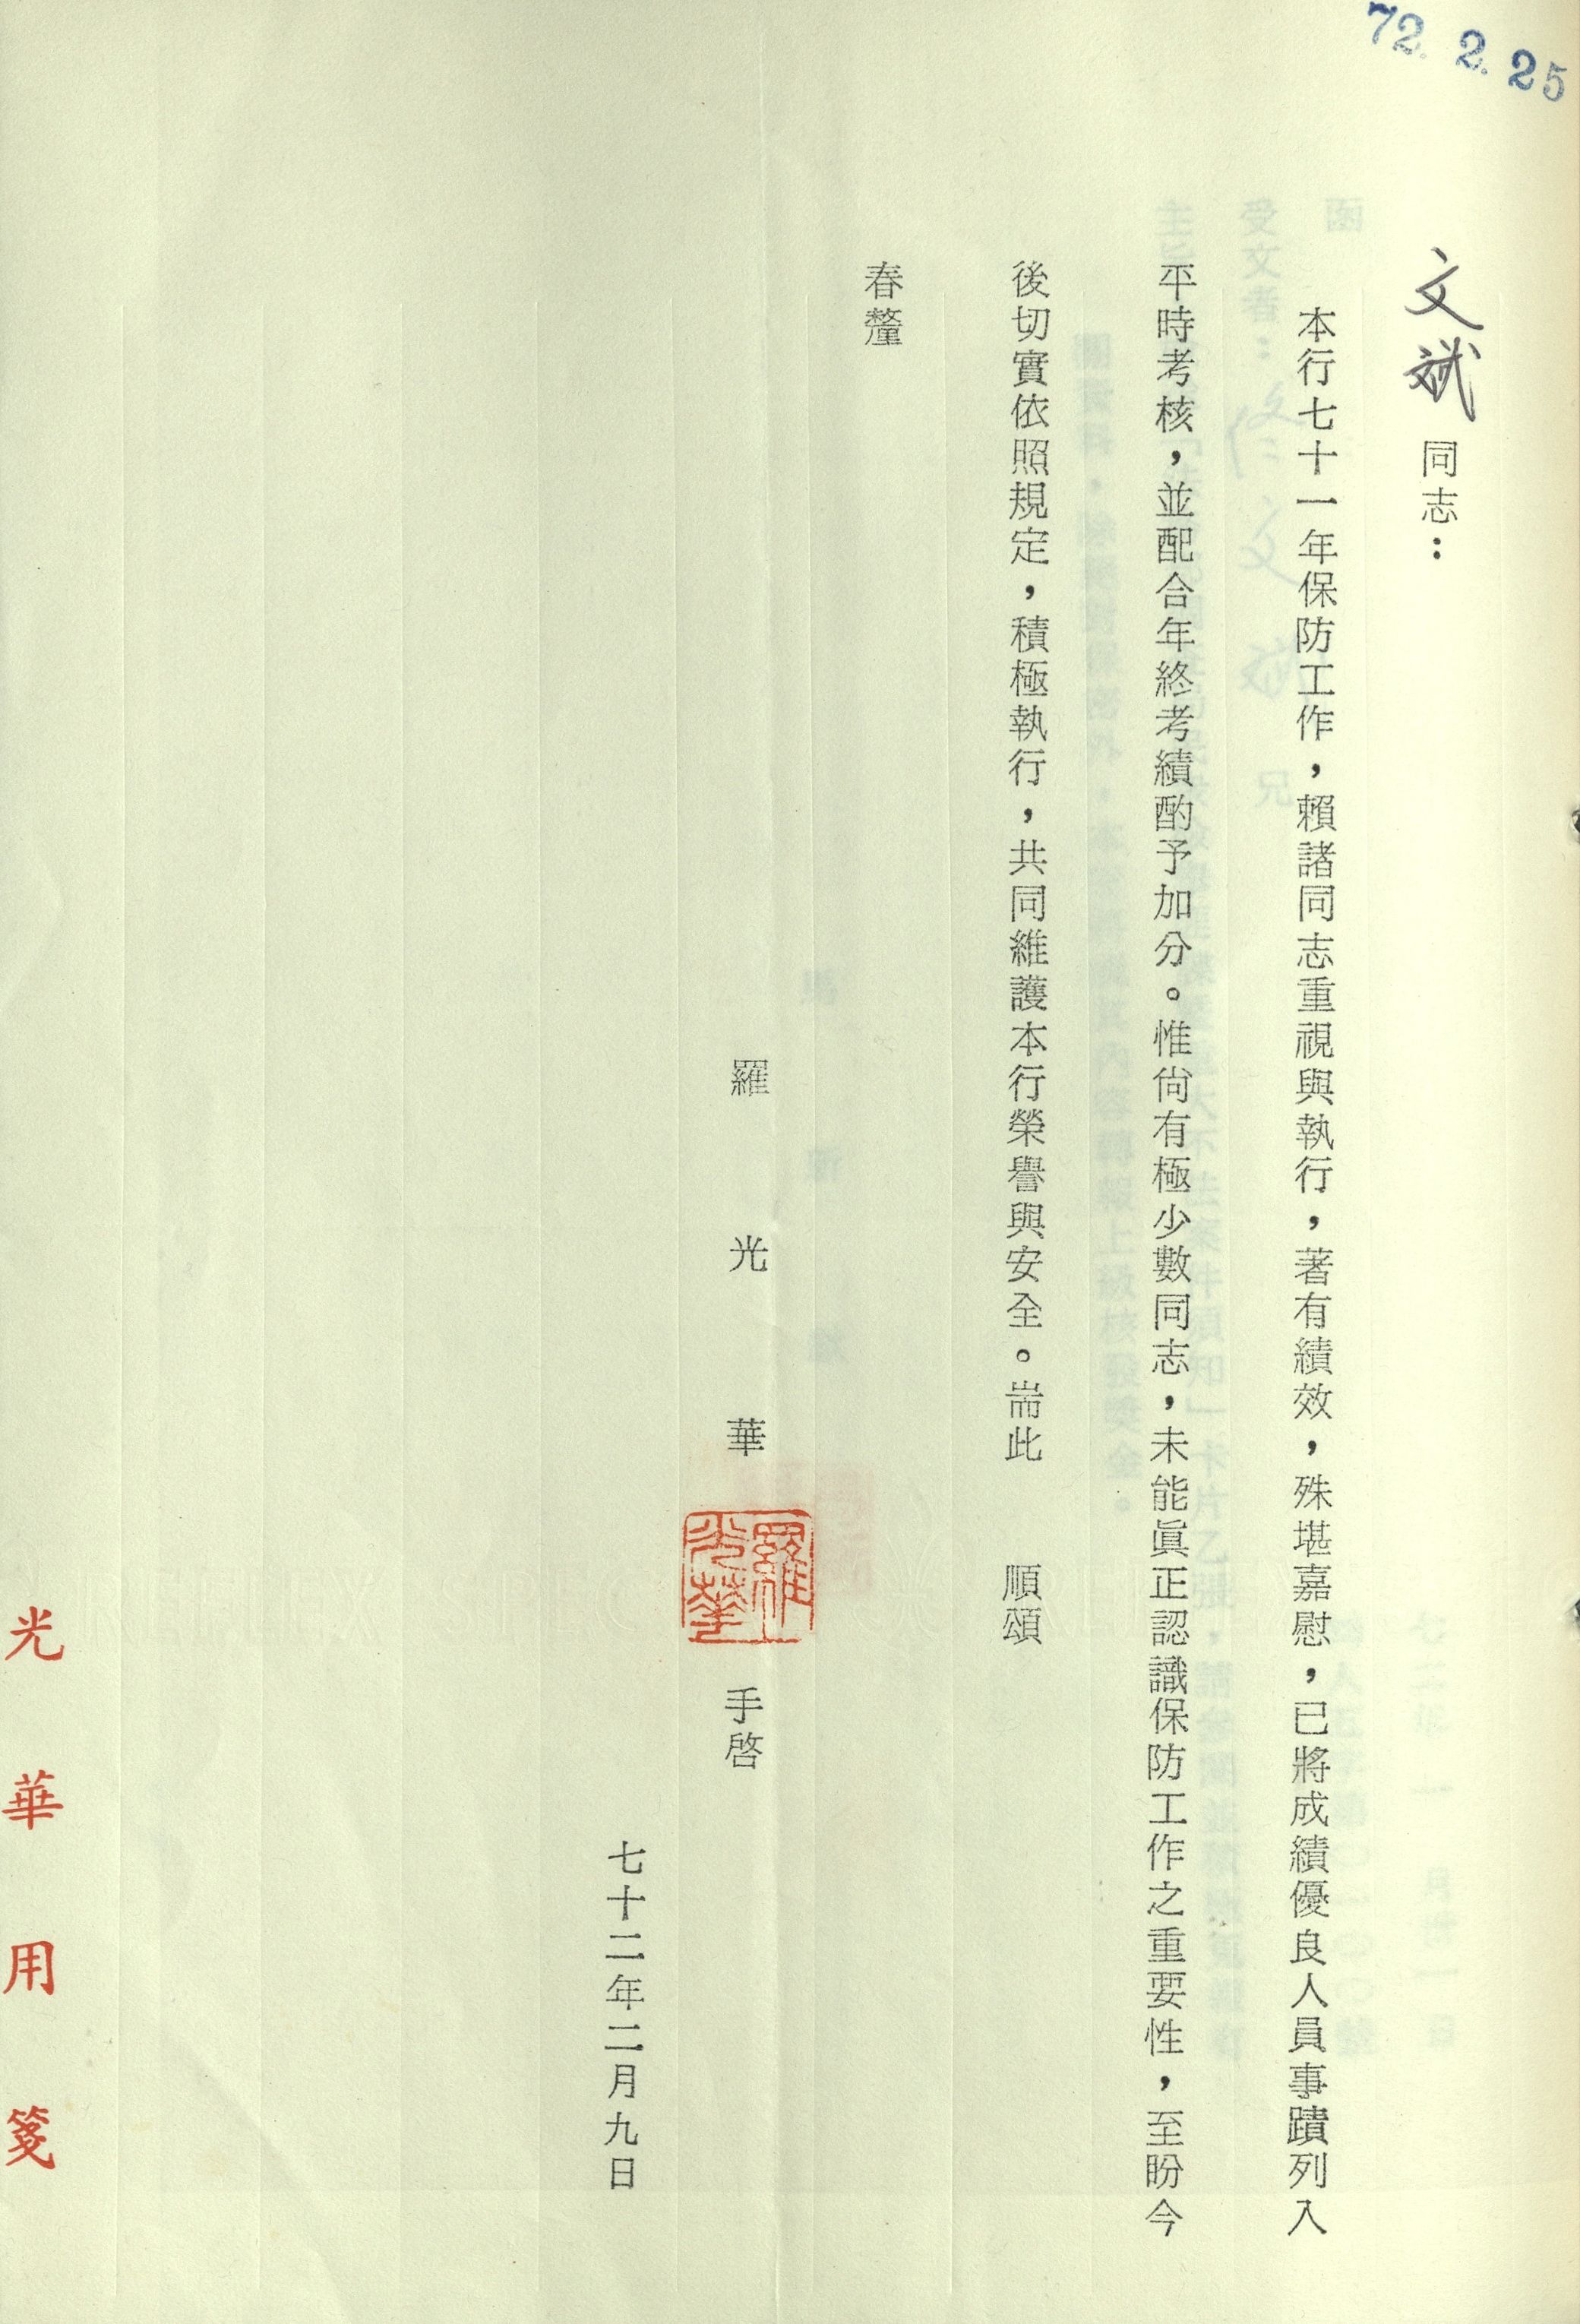 72. 2. 25
文斌同志：
本行七十一年保防工作，賴諸同志重視與執行，著有績效，殊堪嘉慰，已將成績優良人員事蹟列入
平時考核，並配合年終考績酌予加分。惟尙有極少數同志，未能眞正認識保防工作之重要性，至盼今
後切實依照規定，積極執行，共同維護本行榮譽與安全。耑此　順頌
春釐
羅光華
羅光華
手啓
七十二年二月九日
光華用箋